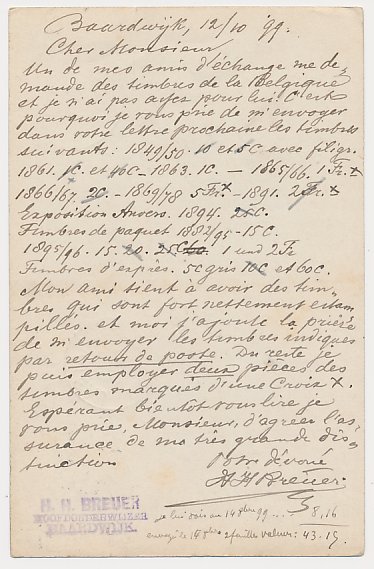 Baardwijk, 12/10 99.
Cher Monsieur,
Un de mes amis d'échange me de-
mande des timbres de la Belgique
et je n'ai pas assez pour lui. C'est
pourquoi je vous prie de m'envoyer
dans votre lettre prochaine les timbres
suivants: 1849/50. 10 et 5 C avec filigr.
1861. 1C. et 40C - 1863. 1C. - 1865/66. 1 Fr. x
1866/67 2C. - 1869/78 5 Fr. x - 1891. 2 Fr. x
Exposition Anvers. 1894. 25C.
Timbres de paquet 1882/95 - 15C.
1895/96. 15. 20. 25C 50. 1 und 2 Fr
Timbres d'exprès. 5C gris 10C et 60C.
Mon ami tient à avoir des tim-
bres qui sont fort nettement estam-
pillés. et moi j'ajoute la prière
de m'envoyer les timbres indiqués
par retour de poste. Du reste je
puis employer deux pièces des
timbres marqués d'une Croix x.
Espérant bientôt vous lire je
vous prie, Monsieur, d'agréer l'as-
surance de ma très grande dis-
tinction
Votre dévoué
H H Breuer.
H. H. BREUER
HOOFDONDERWIJZER
BAARDWIJK
je lui dois au 14 8bre 99 8,16
envoyé le 14 8bre 2 feuilles valeur: 43.15